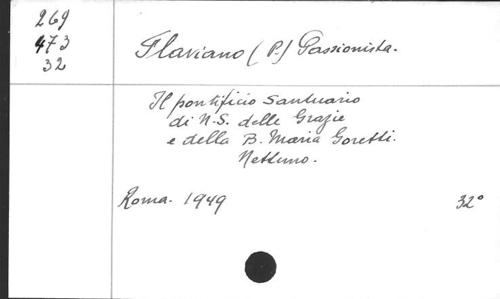 269
473
32
Flaviano (P.) Passionista.
Il pontificio Santuario
di N.S. delle Grazie
e della B. Maria Goretti.
Nettuno.
Roma. 1949 32°